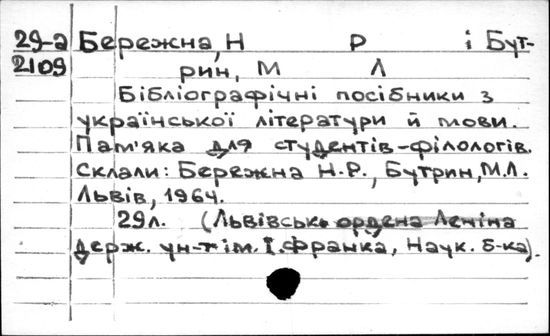 29-а Бережна, Н Р і Бут-
2109 рин, М Л
Бібліографічні посібники з
української літератури й мови.
Пам'яка для студентів-філологів.
Склали: Бережна Н.Р., Бутрин, М.Л.
Львів, 1964.
29л. (Львівськ. ордена Леніна
держ. ун-т ім. І. Франка, Наук. б-ка).